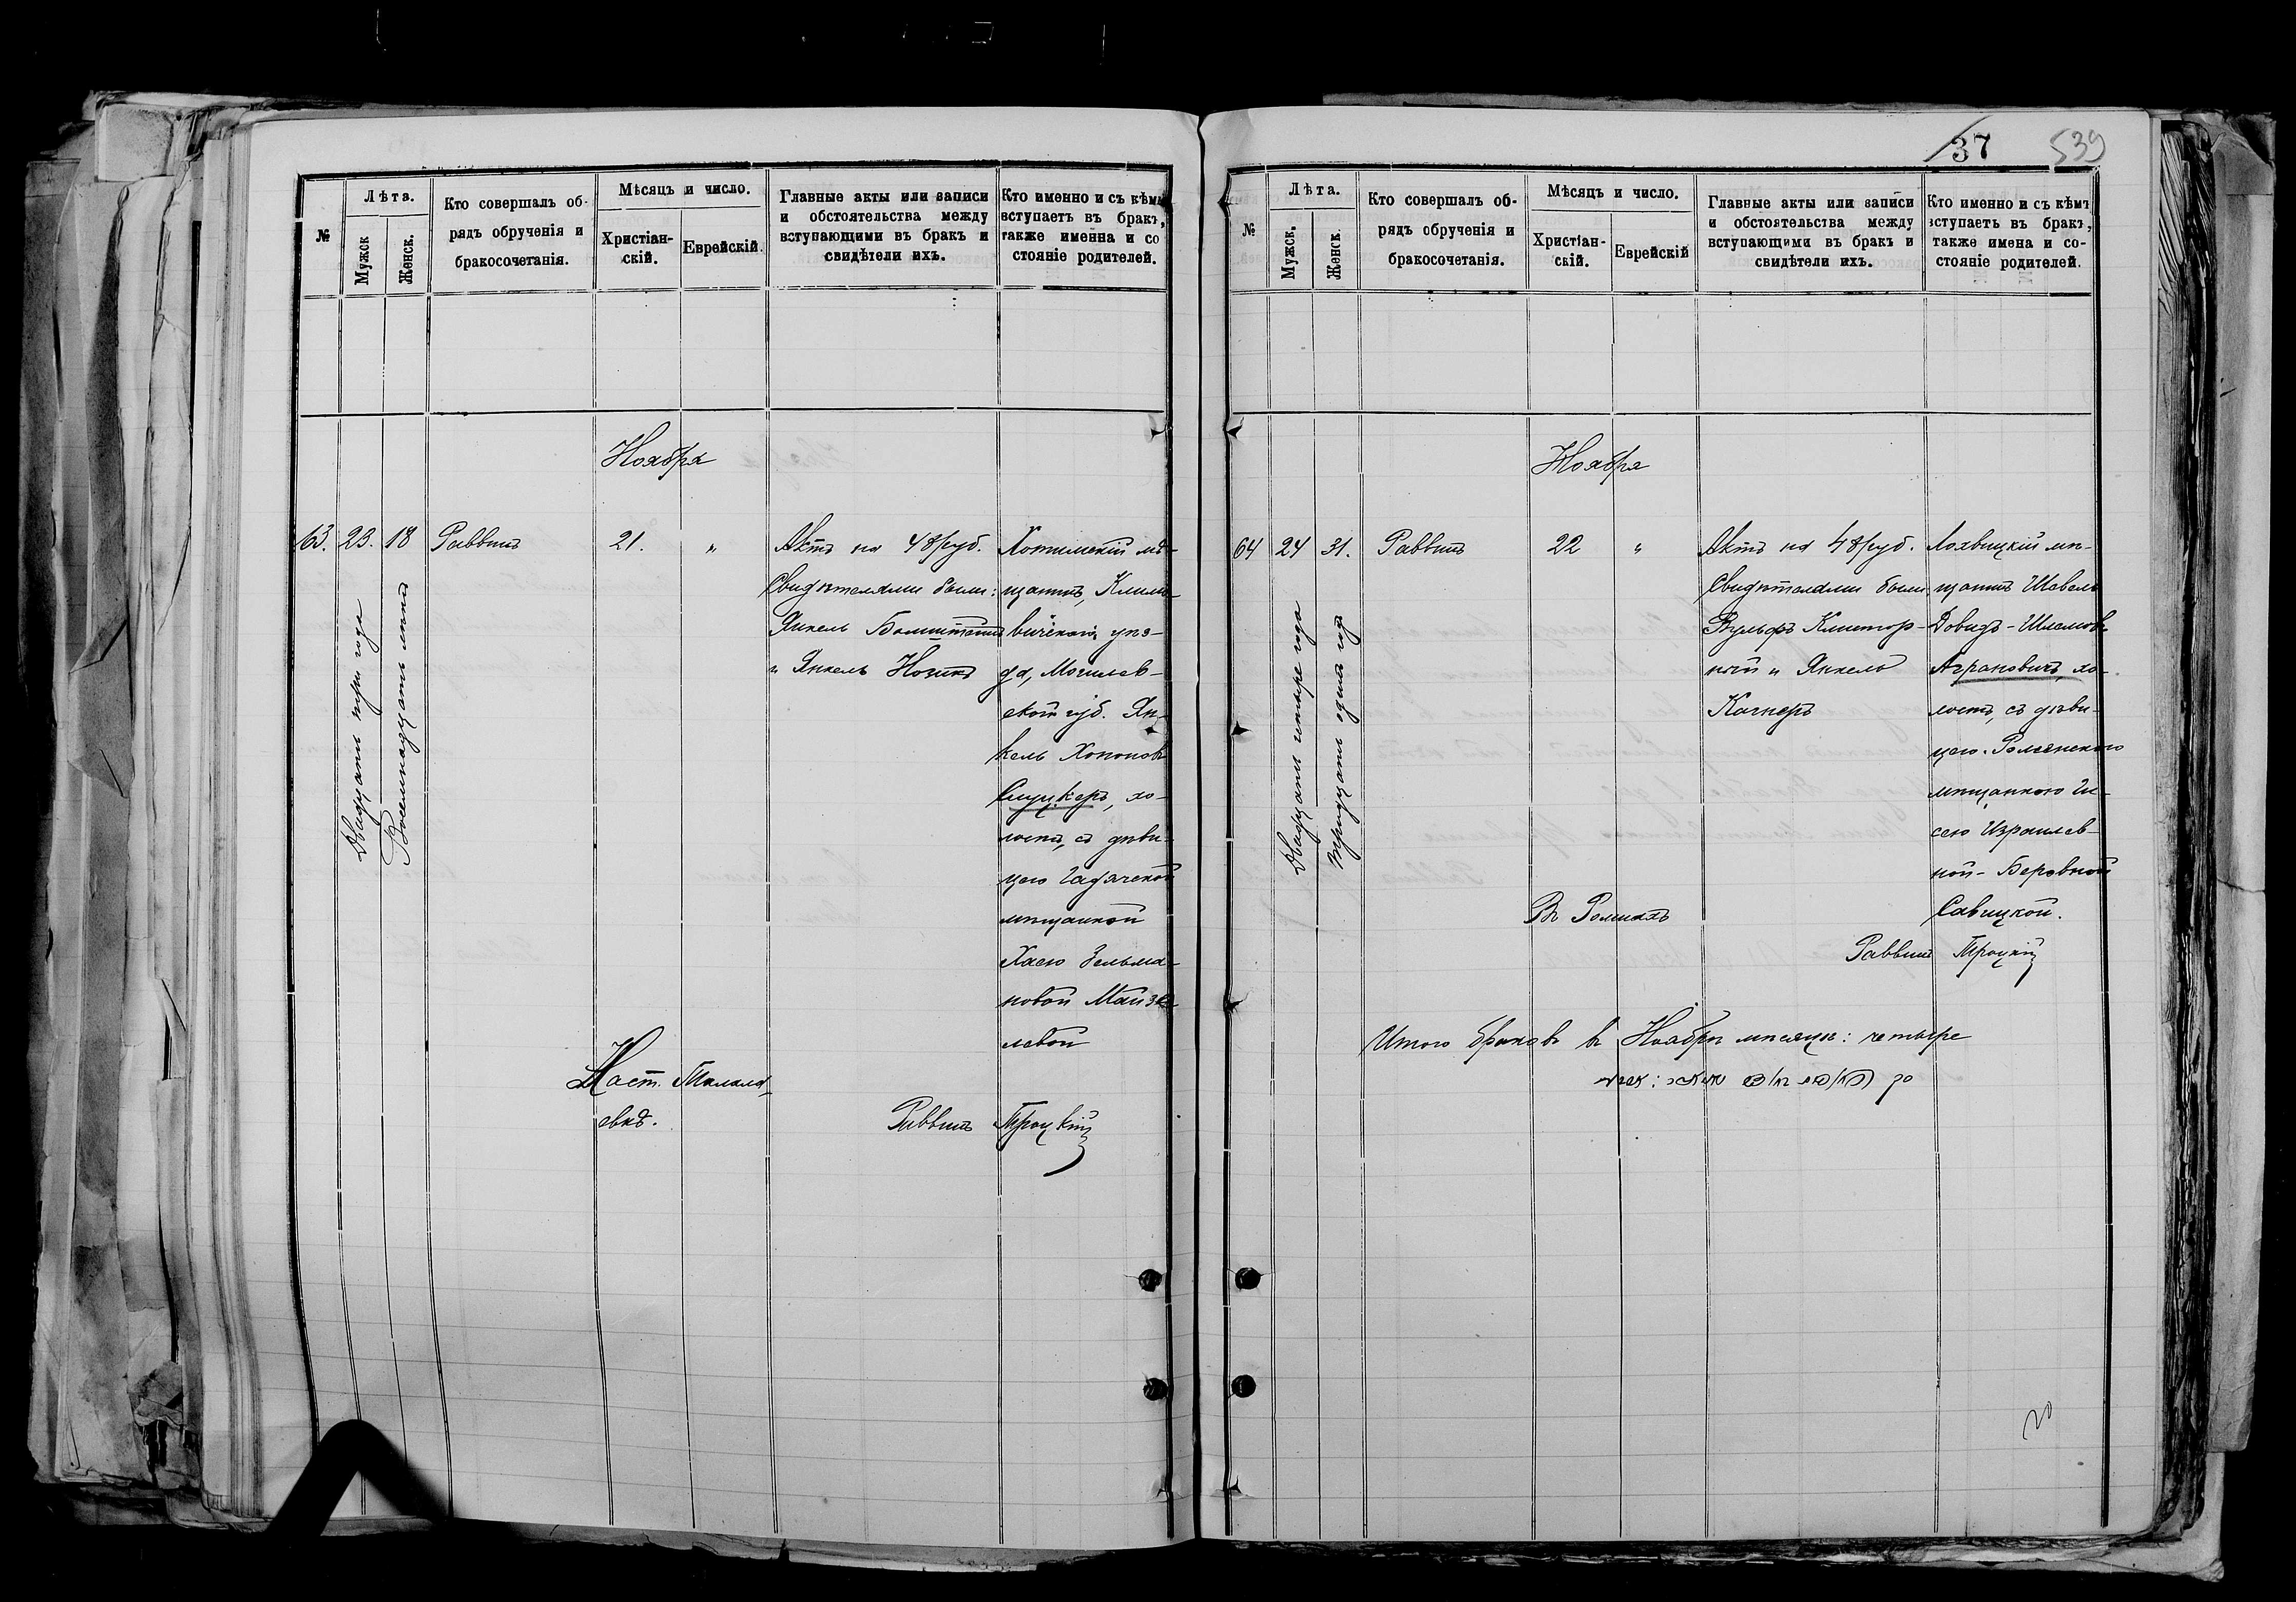 №
Лѣта.
Мужск
Женск.
Кто совершалъ об-
рядъ обрученія и
бракосочетанія.
Мѣсяцъ и число.
Христіан-
скій.
Еврейскій.
Главные акты или записи
и обстоятельства между
вступающими въ бракъ и
свидѣтели ихъ.
Кто именно и съ кѣмъ
вступаетъ въ бракъ,
также именна и со
стояніе родителей.
Ноября
63.
23.
Двадцать три года
18
Восемнадцать лѣтъ
Раввинъ
21.
"
Актъ на 48 руб.
Свидѣтелями были:
Янкель
и Янкель
Хотимскій мѣ-
щанинъ, Климо-
вичскаго уѣз-
да, Могилев-
ской губ. Ян-
кель Хононовъ
Слуцкеръ, хо-
лостъ, съ дѣви-
цею Гадячской
мѣщанкой
Хасею Зельма-
новой Майзе-
левой
Мѣст. Талала-
евка.
Раввинъ Троцкій
37
539
№
Лѣта.
Мужск.
Женск.
Кто совершалъ об-
рядъ обрученія и
бракосочетанія.
Мѣсяцъ и число.
Христіан-
скій.
Еврейскій
Главные акты или записи
и обстоятельства между
вступающими въ бракъ и
свидѣтели ихъ.
Кто именно и съ кѣмъ
вступаетъ въ бракъ,
также имена и со-
стояніе родителей.
Ноября
64
24
Двадцать четыре года
31.
Тридцать одинъ годъ
Раввинъ
22
"
Актъ на 48 руб.
Свидѣтелями были
Вульфъ
и Янкель
Лохвицкій мѣ-
щанинъ Шевель
Довидъ-Шлемовъ
Аграновичъ, хо-
лостъ, съ дѣви-
цею Роменскою
мѣщанкою Ги-
сею Израилев-
ной-Беровной
Савицкой.
Въ Ромнахъ
Раввинъ Троцкій
Итого браковъ въ Ноябрѣ мѣсяцѣ: четыре
20